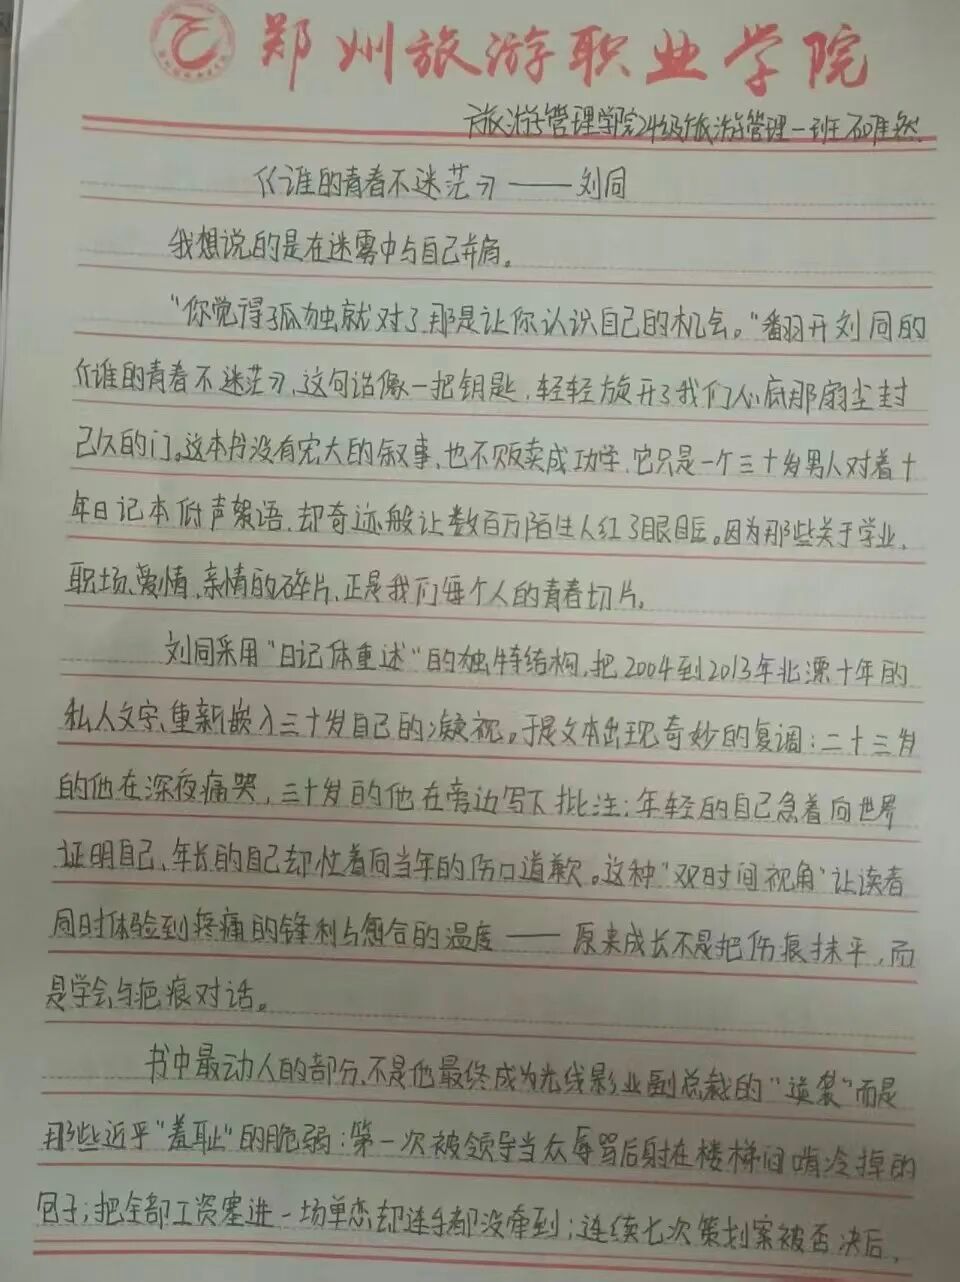 郑州旅游职业学院
旅游管理学院24级旅游管理一班 石唯然
《谁的青春不迷茫》——刘同
我想说的是在迷雾中与自己并肩。
"你觉得孤独就对了,那是让你认识自己的机会。"翻开刘同的
《谁的青春不迷茫》,这句话像一把钥匙,轻轻旋开了我们心底那扇尘封
已久的门。这本书没有宏大的叙事,也不贩卖成功学,它只是一个三十岁男人对着十
年日记本低声絮语,却奇迹般让数百万陌生人红了眼眶。因为那些关于学业、
职场、爱情、亲情的碎片,正是我们每个人的青春切片。
刘同采用"日记体重述"的独特结构,把2004到2013年北漂十年的
私人文字、重新嵌入三十岁自己的凝视。于是文本出现奇妙的复调:二十三岁
的他在深夜痛哭,三十岁的他在旁边写下批注;年轻的自己急着向世界
证明自己、年长的自己却忙着向当年的伤口道歉。这种"双时间视角"让读者
同时体验到疼痛的锋利与愈合的温度——原来成长不是把伤痕抹平,而
是学会与疤痕对话。
书中最动人的部分,不是他最终成为光线影业副总裁的"逆袭"而是
那些近乎"羞耻"的脆弱:第一次被领导当众辱骂后躲在楼梯间啃冷掉的
包子;把全部工资塞进一场单恋却连手都没牵到;连续七次策划案被否决后,